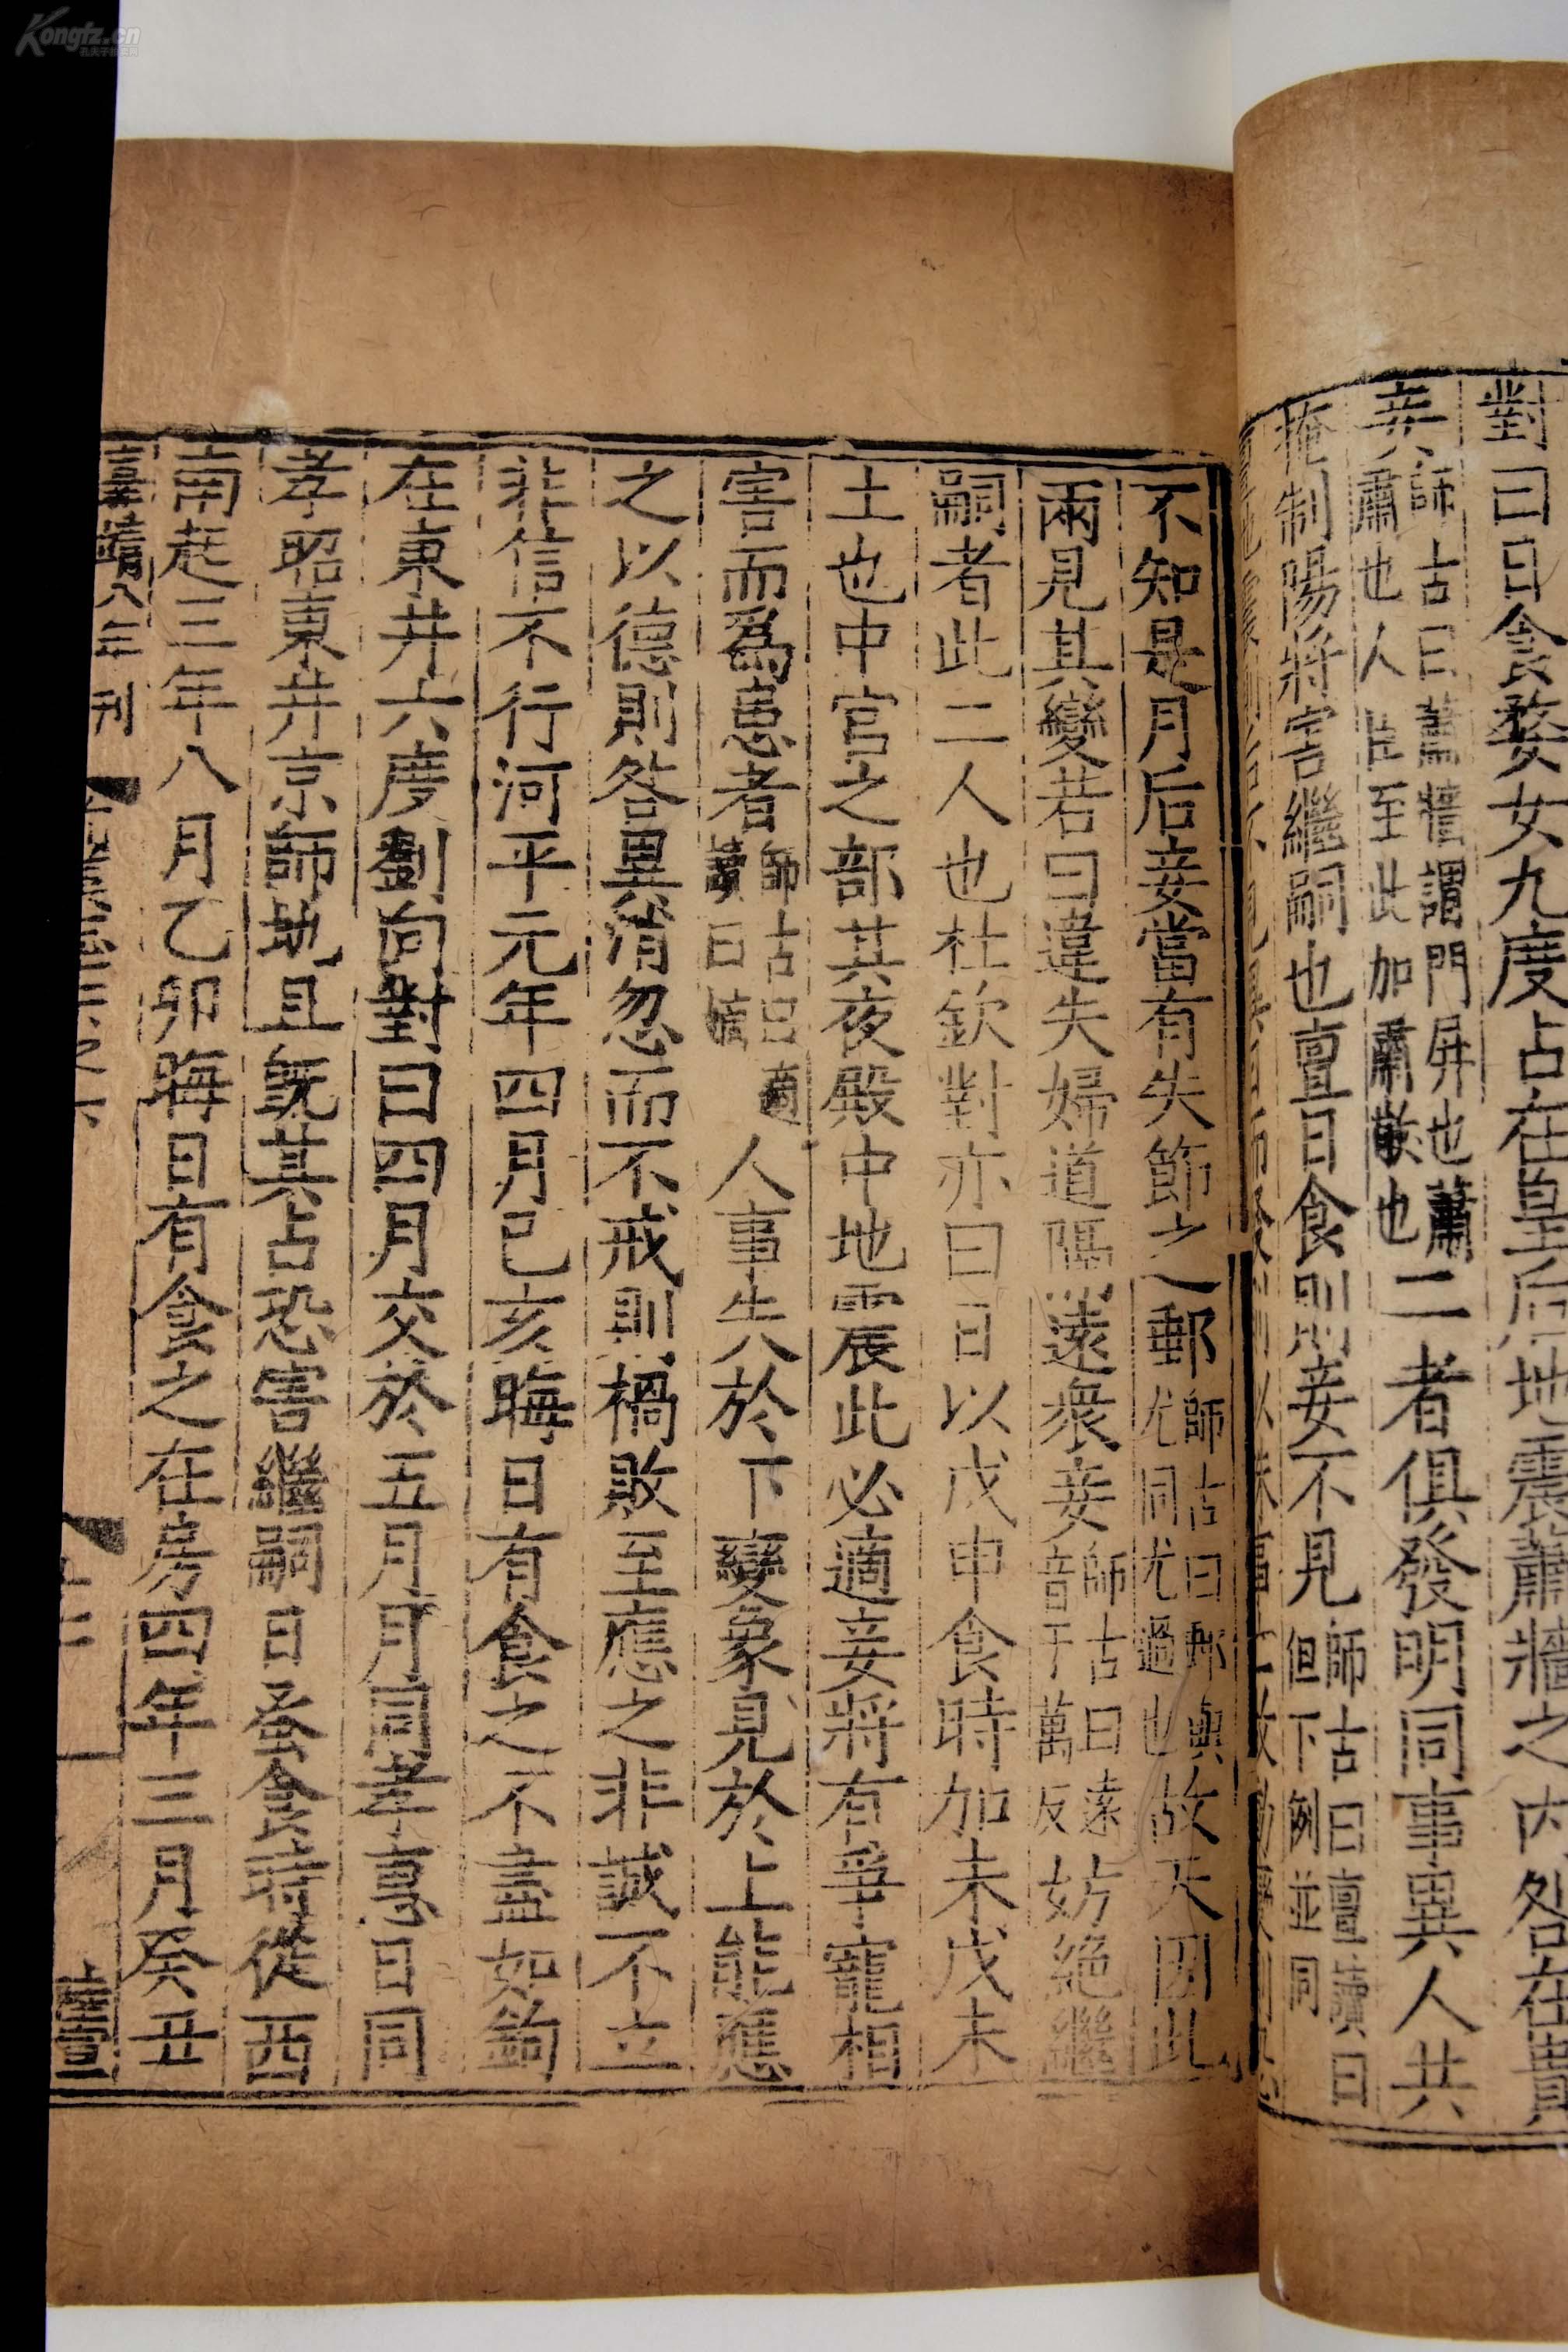 對曰日食婺女九度占在皇后地震蕭牆之內咎在貴
妾師古曰蕭牆謂門屏也蕭肅也人臣至此加肅敬也二者俱發明同事異人共
掩制陽將害繼嗣也亶日食則妾不見師古曰亶讀曰但下例並同
不知是月后妾當有失節之郵師古曰郵與尤同尤過也故天因此
兩見其變若曰違失婦道隔遠衆妾師古曰遠音于萬反妨絶繼
嗣者此二人也杜欽對亦曰日以戊申食時加未戊未
土也中宮之部其夜殿中地震此必適妾將有爭寵相
害而爲患者師古曰適讀曰嫡人事失於下變象見於上能應
之以德則咎異消忽而不戒則禍敗至應之非誠不立
非信不行河平元年四月己亥晦日有食之不盡如鉤
在東井六度劉向對曰四月交於五月月同孝惠日同
孝昭東井京師地且旣其占恐害繼嗣日蚤食時從西
南起三年八月乙卯晦日有食之在房四年三月癸丑
嘉靖八年刊
Kongfz.cn